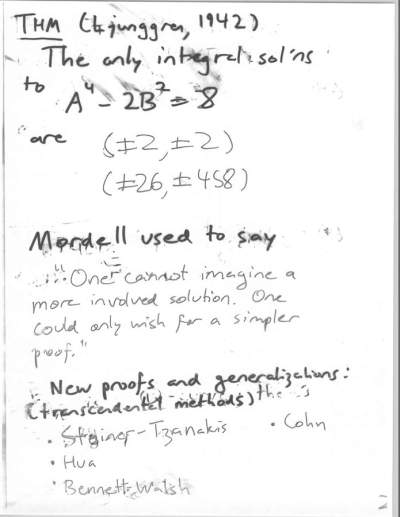 THM (Ljunggren, 1942)
The only integral sol'ns
to A⁴ - 2B² = 8
are (±2, ±2)
(±26, ±458)
Mordell used to say
"One cannot imagine a
more involved solution. One
could only wish for a simpler
proof."
New proofs and generalizations:
(transcendental methods)
• Steiner-Tzanakis • Cohn
• Hua
• Bennett-Walsh